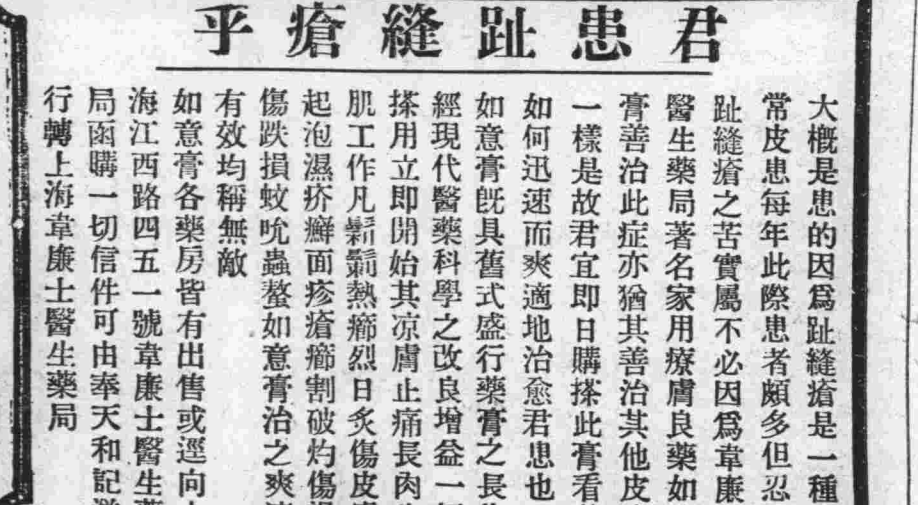 君患趾縫瘡乎
大概是患的因爲趾縫瘡是一種
常皮患每年此際患者頗多但忍
趾縫瘡之苦實屬不必因爲韋廉
醫生藥局著名家用療膚良藥如
膏善治此症亦猶其善治其他皮
一樣是故君宜即日購搽此膏看
如何迅速而爽適地治愈君患也
如意膏旣具舊式盛行藥膏之長
經現代醫藥科學之改良增益一
搽用立即開始其凉膚止痛長肉
肌工作凡鬎鬁熱癤烈日炙傷皮
起泡濕疥癬面疹瘡癤割破灼傷
傷跌損蚊吮蟲螫如意膏治之爽
有效均稱無敵
如意膏各藥房皆有出售或逕向
海江西路四五一號韋廉士醫生
局函購一切信件可由奉天和記
行轉上海韋廉士醫生藥局